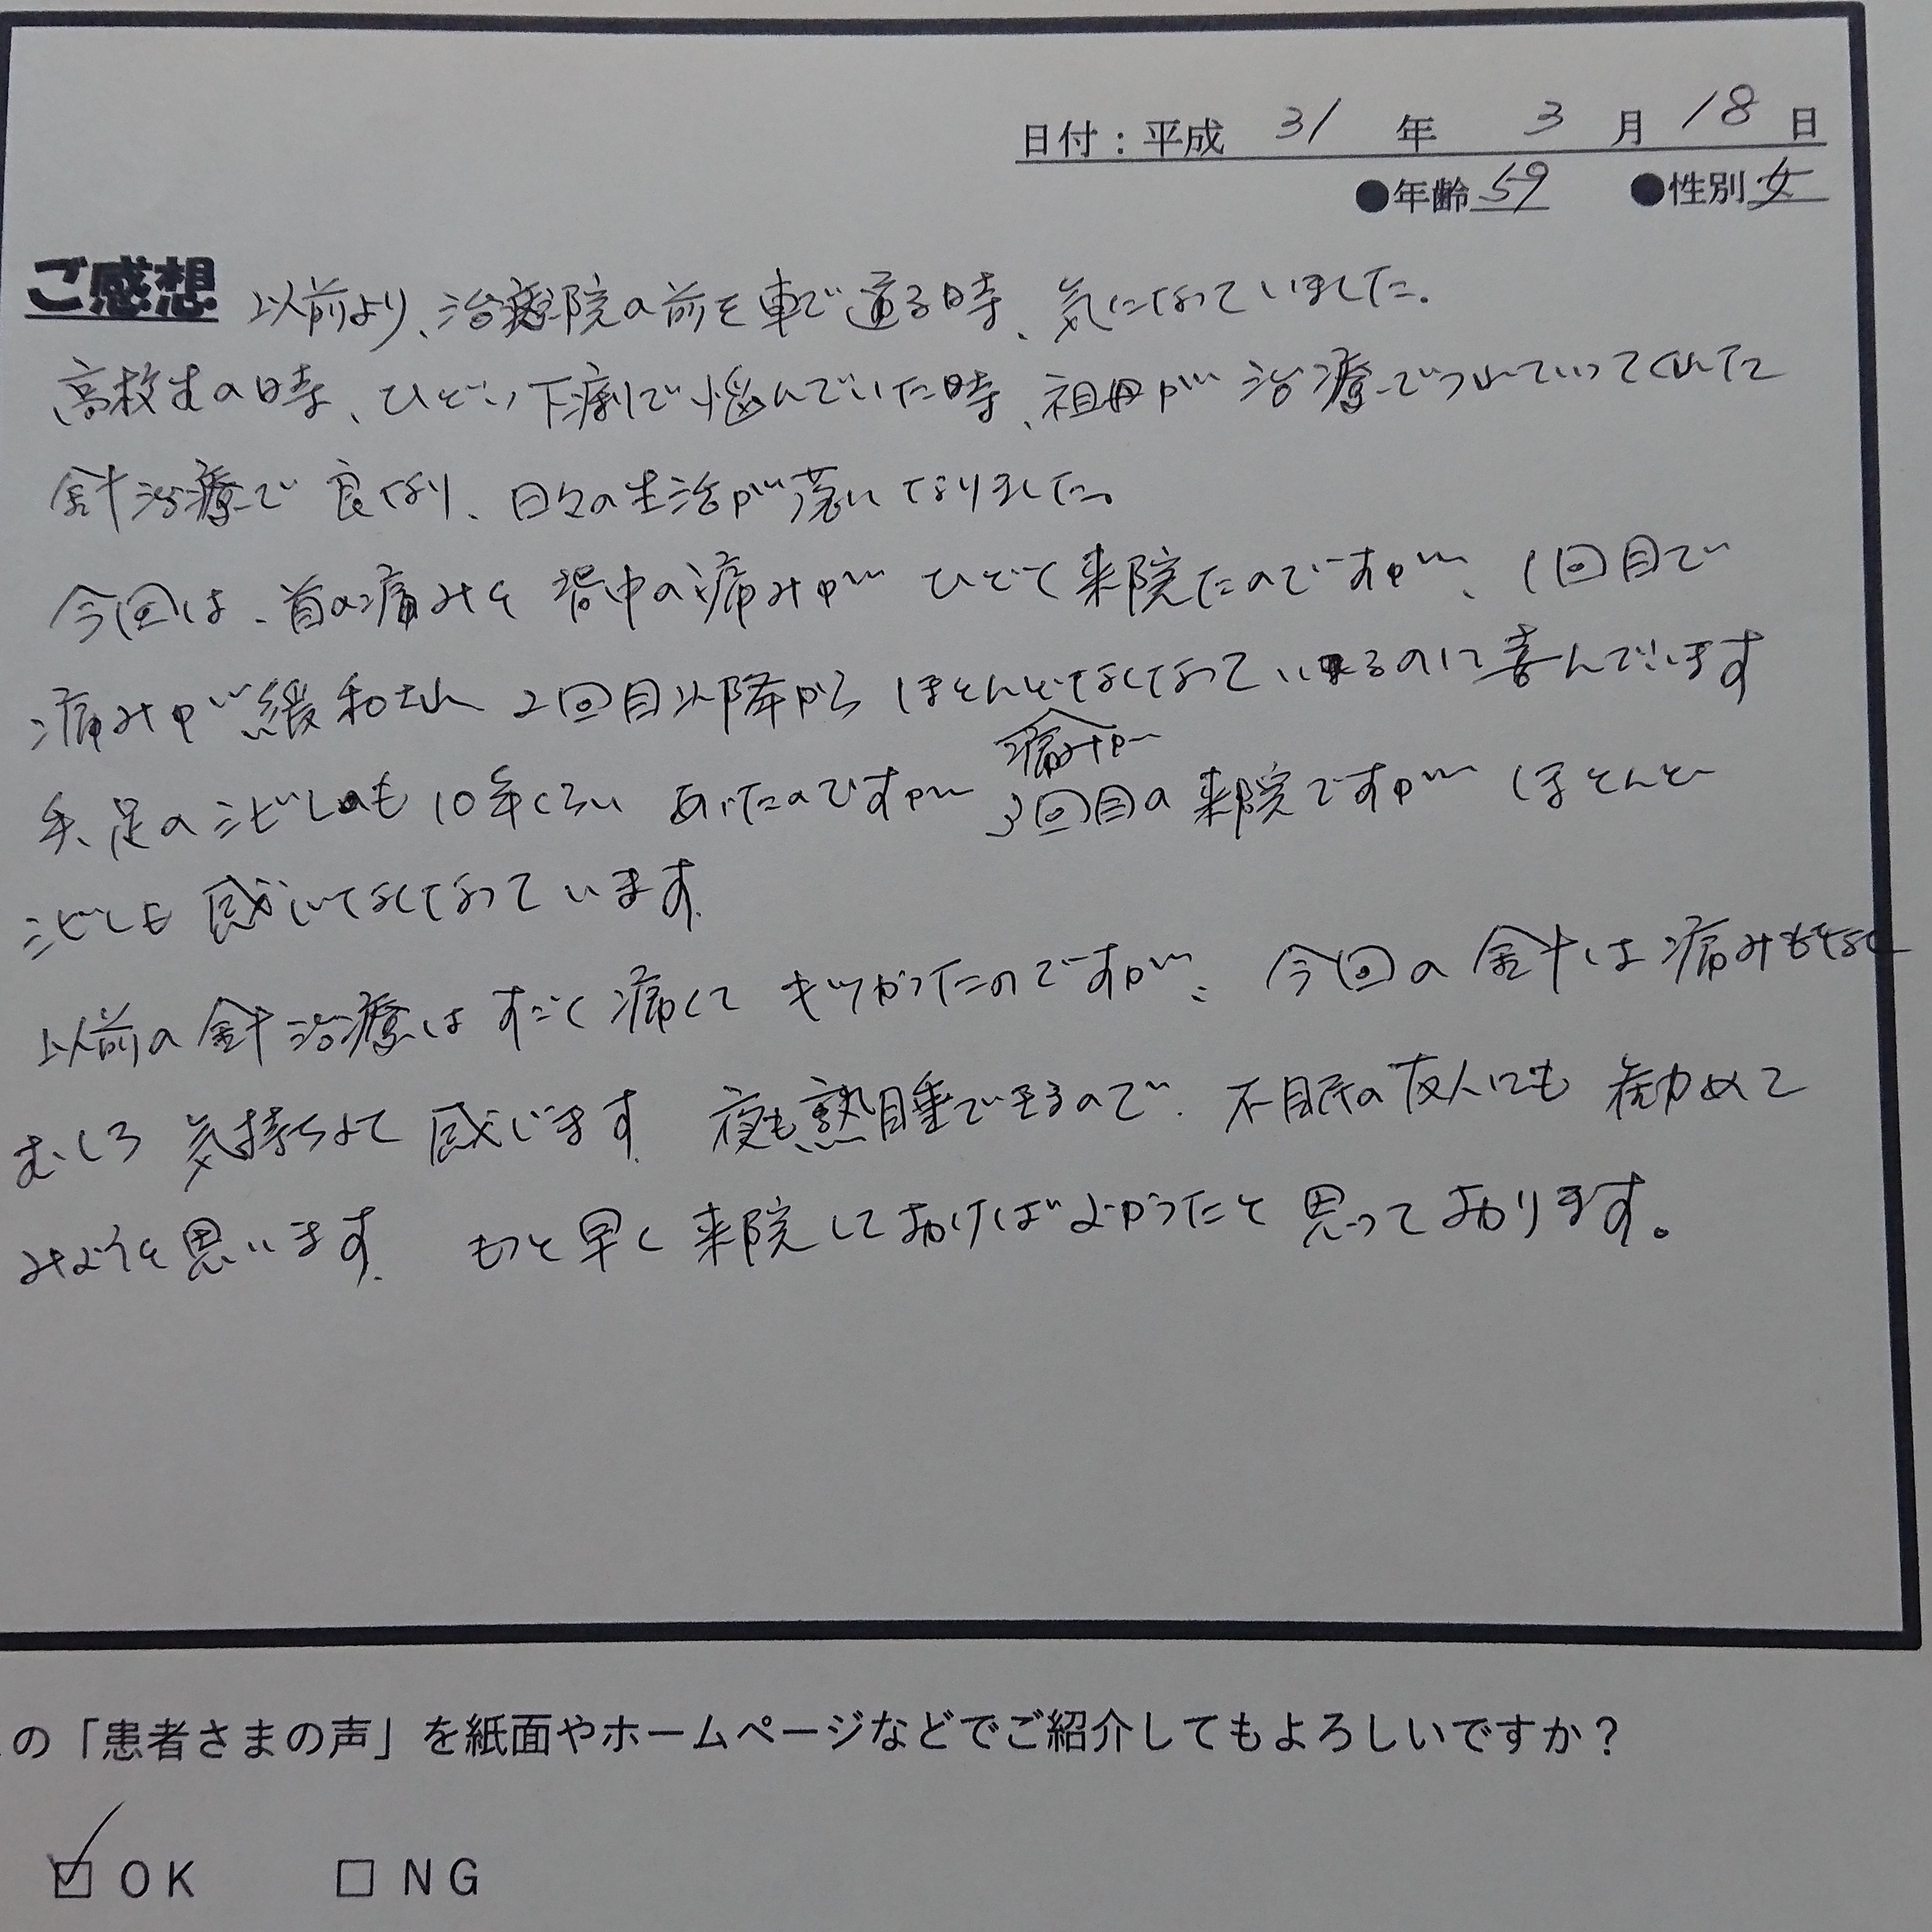 日付：平成 31 年 3 月 18 日
●年齢 59 ●性別 女
ご感想 以前より、治療院の前を車で通る時、気になっていました。
高校生の時、ひどい下痢で悩んでいた時、祖母が治療でつれていってくれた
針治療で良くなり、日々の生活が楽になりました。
今回は、首の痛みと背中の痛みがひどく来院たのですが、1回目で
痛みが緩和され 2回目以降から ほとんどなくなっているのに喜んでいます
痛みが
手、足のシビレも10年くらい あったのですが 3回目の来院ですが ほとんど
シビレも 感じなくなっています。
以前の針治療は すごく痛くて キツかったのですが、今回の針は痛みもなく
むしろ 気持ちよく 感じます。夜も熟睡できるので、不眠の友人にも 勧めて
みようと思います。 もっと早く来院しておけばよかったと思っております。
の「患者さまの声」を紙面やホームページなどでご紹介してもよろしいですか？
☑ OK □ NG